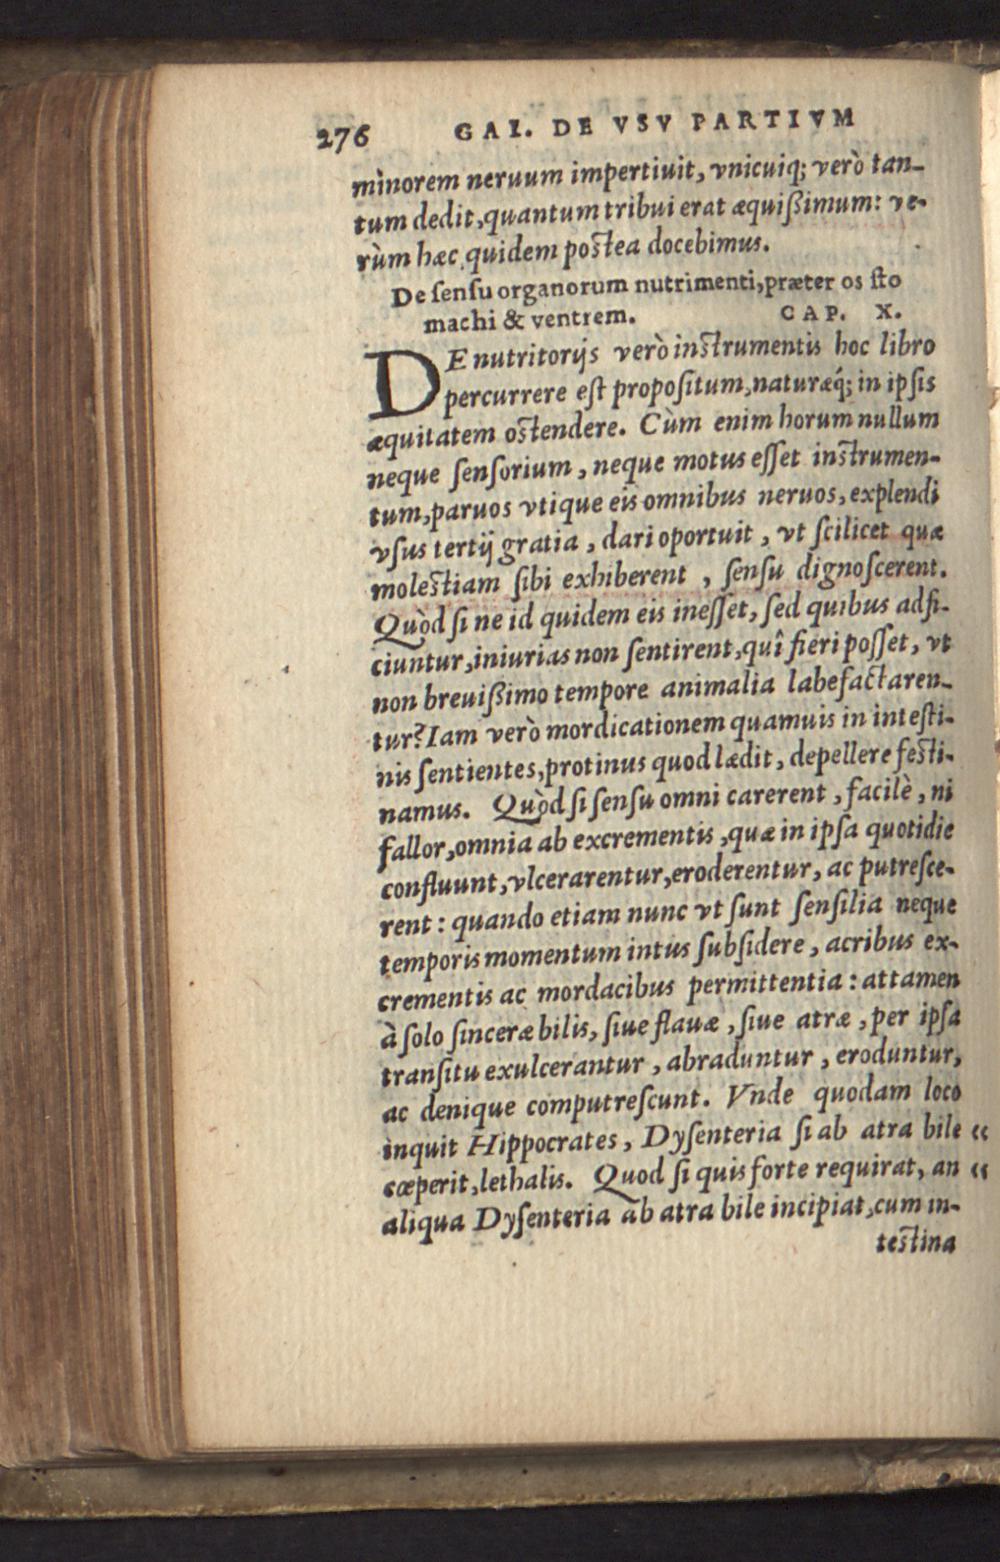 276 GAL. DE VSV PARTIVM
minorem neruum impertiuit, vnicuiq; verò tan-
tum dedit, quantum tribui erat æquißimum: ve-
rùm hæc quidem postea docebimus.
De sensu organorum nutrimenti, præter os sto
machi & ventrem. CAP. X.
DE nutritorijs verò instrumentis hoc libro
percurrere est propositum, naturæq́; in ipsis
æquitatem ostendere. Cùm enim horum nullum
neque sensorium, neque motus esset instrumen-
tum, paruos vtique eis omnibus neruos, explendi
vsus tertij gratia, dari oportuit, vt scilicet quæ
molestiam sibi exhiberent, sensu dignoscerent.
Quòd si ne id quidem eis inesset, sed quibus adfi-
ciuntur, iniurias non sentirent, quî fieri posset, vt
non breuißimo tempore animalia labefactaren-
tur? Iam verò mordicationem quamuis in intesti-
nis sentientes, protinus quod lædit, depellere festi-
namus. Quòd si sensu omni carerent, facilè, ni
fallor, omnia ab excrementis, quæ in ipsa quotidie
confluunt, vlcerarentur, eroderentur, ac putresce-
rent: quando etiam nunc vt sunt sensilia neque
temporis momentum intus subsidere, acribus ex-
crementis ac mordacibus permittentia: attamen
à solo sinceræ bilis, siue flauæ, siue atræ, per ipsa
transitu exulcerantur, abraduntur, eroduntur,
ac denique computrescunt. Vnde quodam loco
inquit Hippocrates, Dysenteria si ab atra bile “
cœperit, lethalis. Quod si quis forte requirat, an “
aliqua Dysenteria ab atra bile incipiat, cum in-
testina